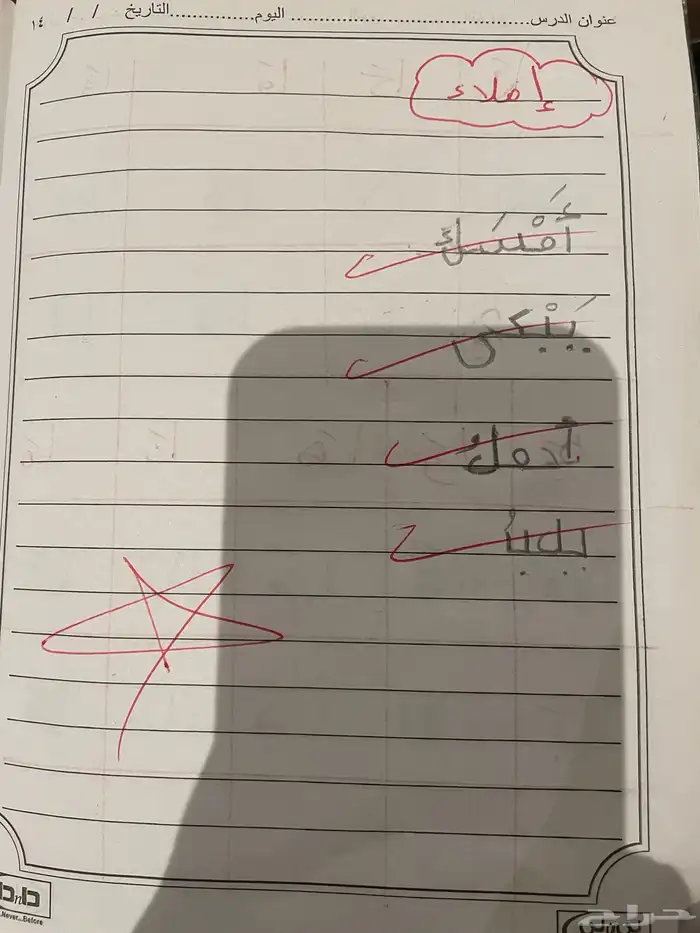 عنوان الدرس................................................ اليوم...............التاريخ / / ١٤
إملاء
أَمْسَكَ
يَبْكي
أدمك
دانة
Never...Before
حراج